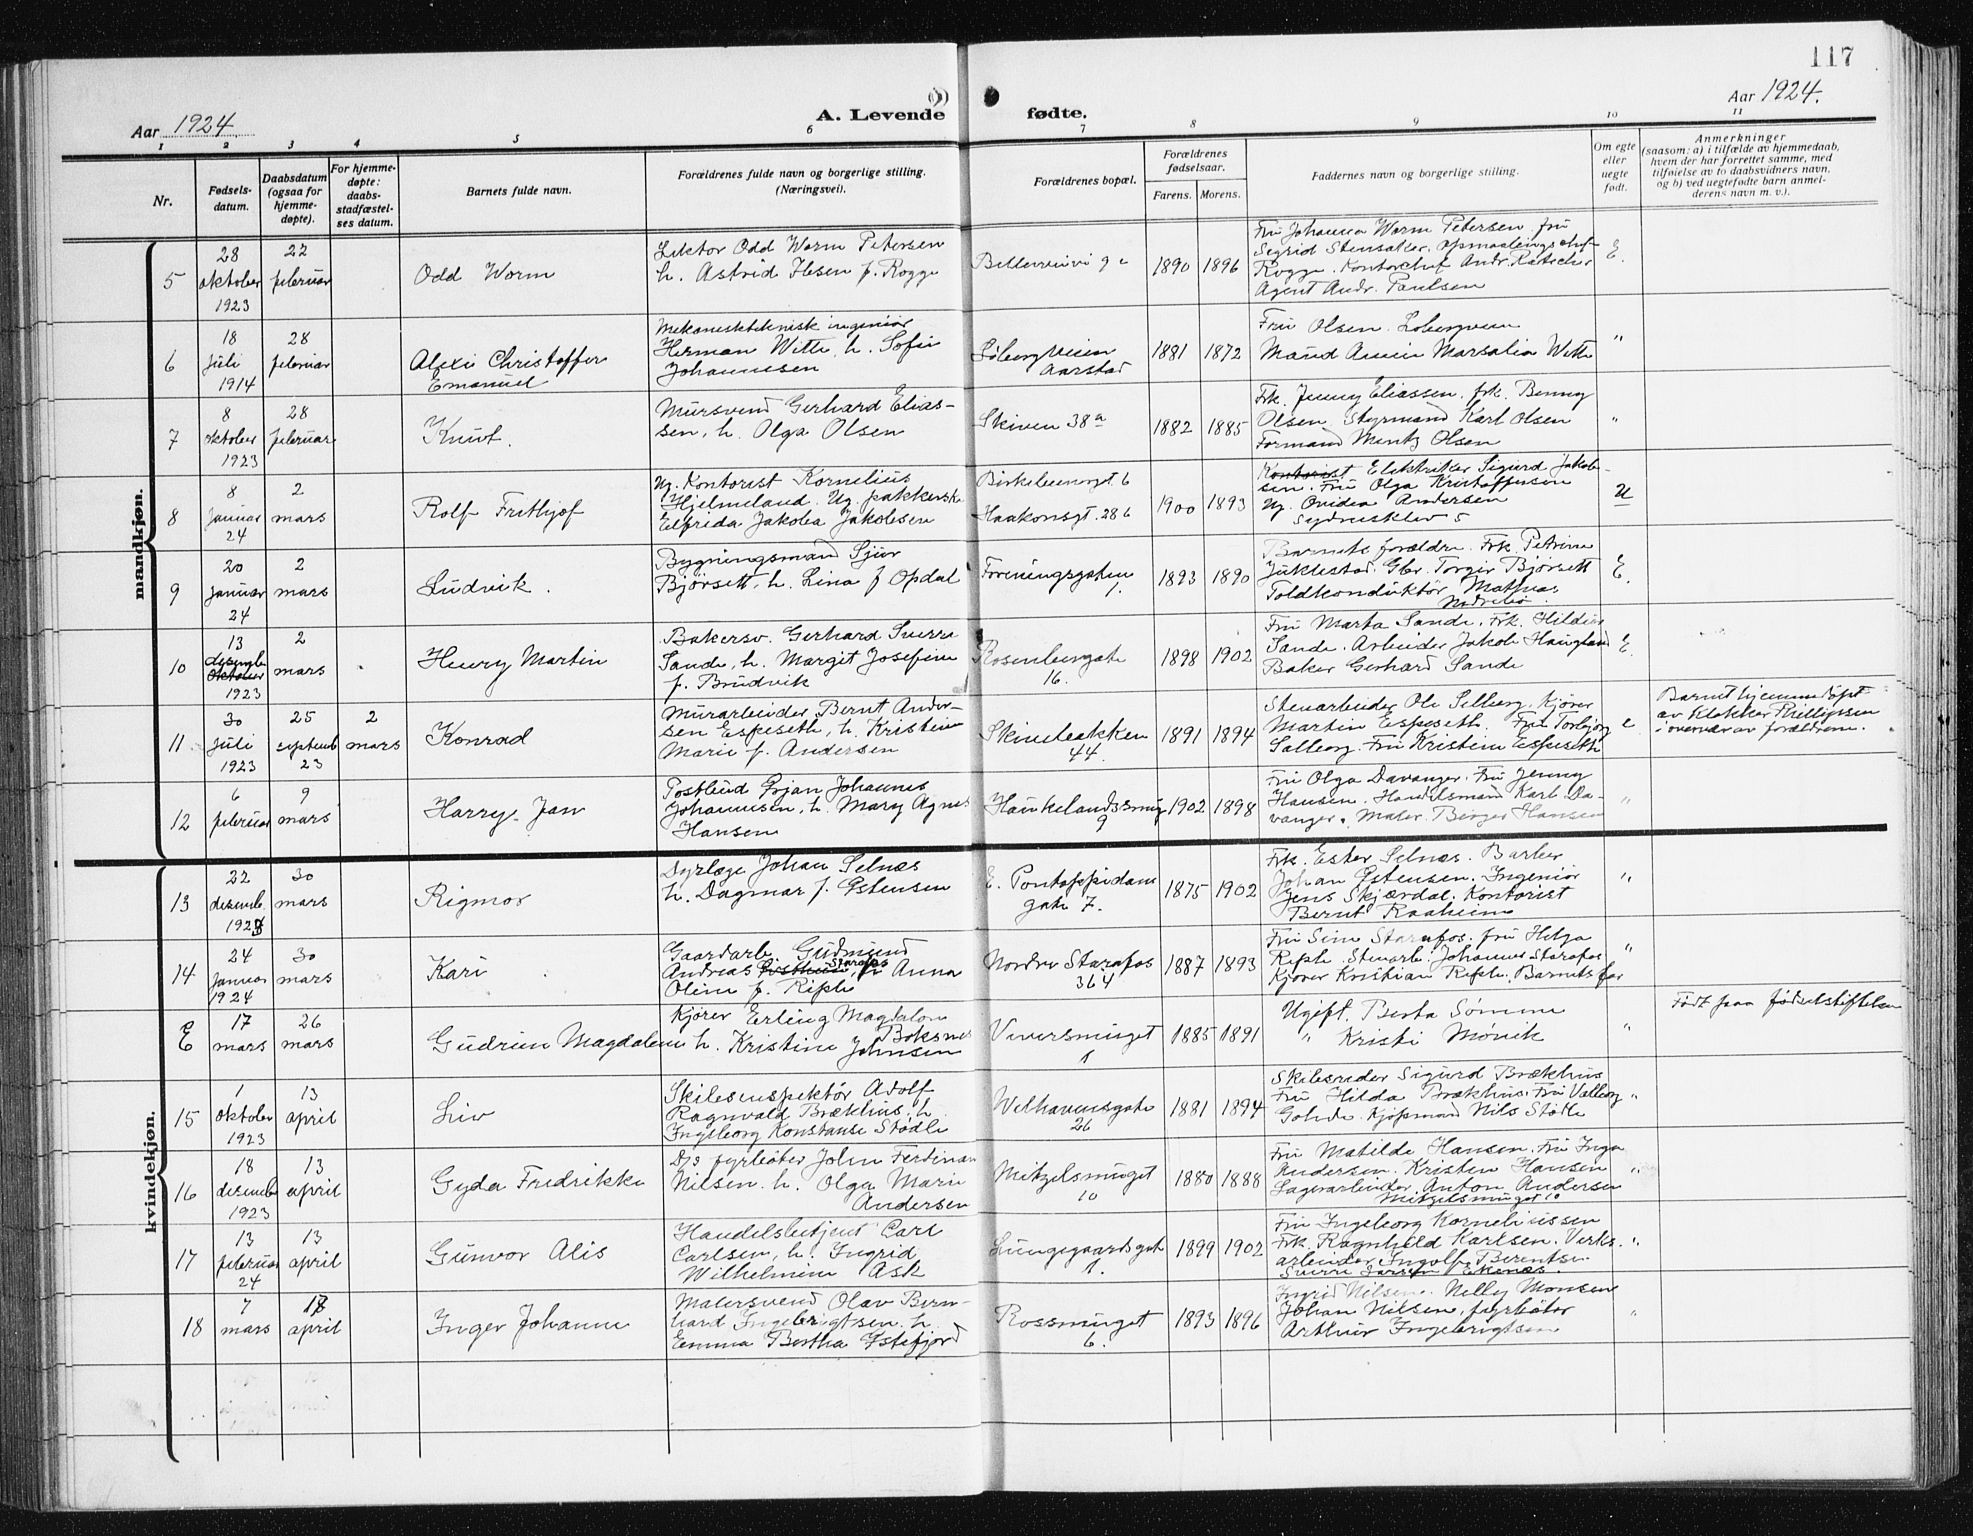 117
Aar 1924.
A. Levende fødte.
Aar 1924.
1 2 3 4 5 6 7 8 9 10 11
Nr.
Fødsels-
datum.
Daabsdatum
(ogsaa for
hjemme-
døpte).
For hjemme-
døpte:
daabs-
stadfæstel-
ses datum.
Barnets fulde navn.
Forældrenes fulde navn og borgerlige stilling.
(Næringsvei).
Forældrenes bopæl.
Forældrenes
fødselsaar.
Farens. Morens.
Faddernes navn og borgerlige stilling.
Om egte
eller
uegte
født.
Anmerkninger
(saasom: a) i tilfælde av hjemmedaab,
hvem der har forrettet samme, med
tilføielse av to daabsvidners navn,
og b) ved uegtefødte barn anmel-
derens navn m. v.).
mandkjøn.
5
28
oktober
1923
22
februar
Odd Worm
Lektor Odd Worm Petersen
h. Astrid Ibsen f. Rogge
1890 1896
Fru Johanna Worm Petersen fru
Sigrid Stensaker, opmaalingschef
Rogge. Kontorchef Andr.
Agent Andr. Paulsen
E.
6
18
juli
1914
28
februar
Alexi Christoffer
Emanuel
Mekaniskteknisk ingeniør
Herman Witte, h. Sofie
Johannesen
Løbergveien
Aarstad
1881 1872
Fru Olsen. Løbergveien
Maud Annie Marsalia Witte
"
7
8
oktober
1923
28
februar
Knut.
Mursvend Gerhard Elias-
sen, h. Olga Olsen
Skiven 38a
1882 1885
Frk. Jenny Eliassen, frk. Benny
Olsen. Styrmand Karl Olsen
Formand Mentz Olsen
"
8
8
januar
24
2
mars
Rolf Frithjof
Ug. Kontorist Kornelius
Hjelmeland. Ug. pakkerske
Elfrida Jakoba Jakobsen
Birkelundsgt. 6
Haakonsgt. 28b
1900 1893
Kontorist Elektriker Sigurd Jakob-
sen. Fru Olga Kristoffersen
Ug. Ovidia Andersen
Sydnesklev 5
U
9
20
januar
24
2
mars
Ludvik.
Bygningsmand Sjur
Bjørsett, h. Lina f. Opdal
Foreningsgaten
1.
1893 1890
Barnets forældre. Frk. Petrine
Juklestad. Gbr. Torgir Bjørsett
Toldkonduktør Mathias
Nedrebø.
E.
10
13
desember
oktober
1923
2
mars
Henry Martin
Bakersv. Gerhard Sverre
Sande, h. Margit Josefine
f. Brudvik
Rosenberggate
16.
1898 1902
Fru Marta Sande. Frk. Hildur
Sande. Arbeider Jakob Haugland
Baker Gerhard Sande
E.
11
30
juli
1923
25
septemb
23
2
mars
Konrad
Murarbeider Bernt Ander-
sen Espeseth, h. Kristine
Marie f. Andersen
Skivebakken
44.
1891 1894
Stenarbeider Ole Solberg. Kjører
Martin Espeseth. Fru Torbjørg
Solberg. Fru Kristine Espeseth
e
Barnet hjemmedøpt
av Klokker Phillipsen
i overvær av forældrene.
12
6
februar
9
mars
Harry. Jan
Postbud Ørjan Johannes
Johannesen, h. Mary Agnes
Hansen
Haukelandssmug
9
1902 1898
Fru Olga Davanger. Fru Jenny
Hansen. Handelsmand Karl Da-
vanger. Maler Birger Hansen
"
kvindekjøn.
13
22
desemb.
1923
30
mars
Rigmor
Dyrlæge Johan Selnæs
h. Dagmar f. Østensen
E. Pontoppidans
gate 7.
1875 1902
Frk. Ester Selnæs. Barber
Johan Østensen. Ingeniør
Jens Skjærdal. Kontorist
Bernt Raaheim
"
14
24
januar
1924
30
mars
Kari
Gaardarb. Gudmund
Andreas Starefos, h. Anna
Oline f. Riple
Nordre Starefos
364
1887 1893
Fru Sine Starefos. fru Helga
Riple. Stenarb. Johannes Starefos
Kjører Kristian Riple. Barnets far
"
E
17
mars
26
mars
Gudrun Magdalene
Kjører Erling Magdalon
Boksnes
h. Kristine Johnsen
Veversmuget
1
1885 1891
Ugift. Berta Sømme
" Kristi Møvik
"
Født paa fødselsstiftelsen
15
1
oktober
1923
13
april
Liv
Skibsinspektør Adolf
Ragnvald Brækhus, h.
Ingeborg Konstanse Stødle
Welhavensgate
26
1881 1894
Skibsreder Sigurd Brækhus
Fru Hilda Brækhus. Fru Valborg
Gohde. Kjøpmand Nils Stødle
"
16
18
desemb
1923
13
april
Gyda Fredrikke
D/s fyrbøter John Ferdinan
Nilsen. h. Olga Marie
Andersen
Mitzelsmuget
10
1880 1888
Fru Matilde Hansen. Fru Inga
Andersen. Kristen Hansen
Lagerarbeider Anton Andersen
Mitzelsmuget 10
"
17
13
februar
24
13
april
Gunvor Alis
Handelsbetjent Carl
Carlsen, h. Ingrid
Wilhelmine Ask
Lungegaardsgate
1.
1899 1902
Fru Ingeborg Korneliussen
Frk. Ragnhild Karlsen. Verks-
arbeider Ingolf Berentsen
Sverre Larsen Ekenes.
"
18
7
mars
april
Inger Johanne
Malersvend Olav Bern-
hard Ingebrigtsen. h.
Emma Bertha Østefjord
Rossmuget
6.
1893 1896
Ingrid Nilsen. Nelly Monsen
Johan Nilsen, fyrbøter
Arthur Ingebrigtsen
"